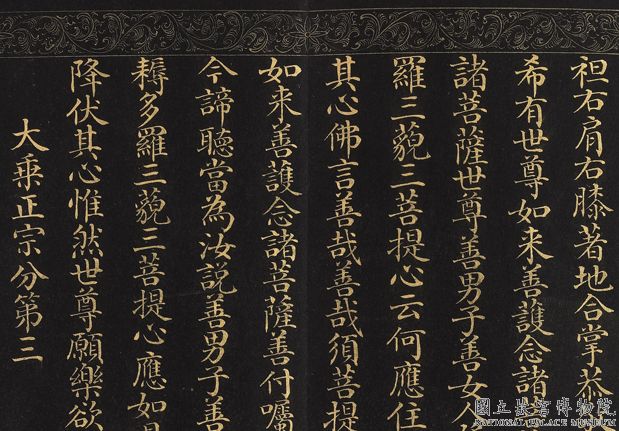 袒右肩右膝著地合掌恭
希有世尊如来善護念諸
諸菩薩世尊善男子善女人
羅三藐三菩提心云何應住
其心佛言善哉善哉須菩提
如来善護念諸菩薩善付囑
今諦聽當為汝説善男子善
耨多羅三藐三菩提心應如是
降伏其心惟然世尊願樂欲
大乗正宗分第三
國立故宮博物院
NATIONAL PALACE MUSEUM